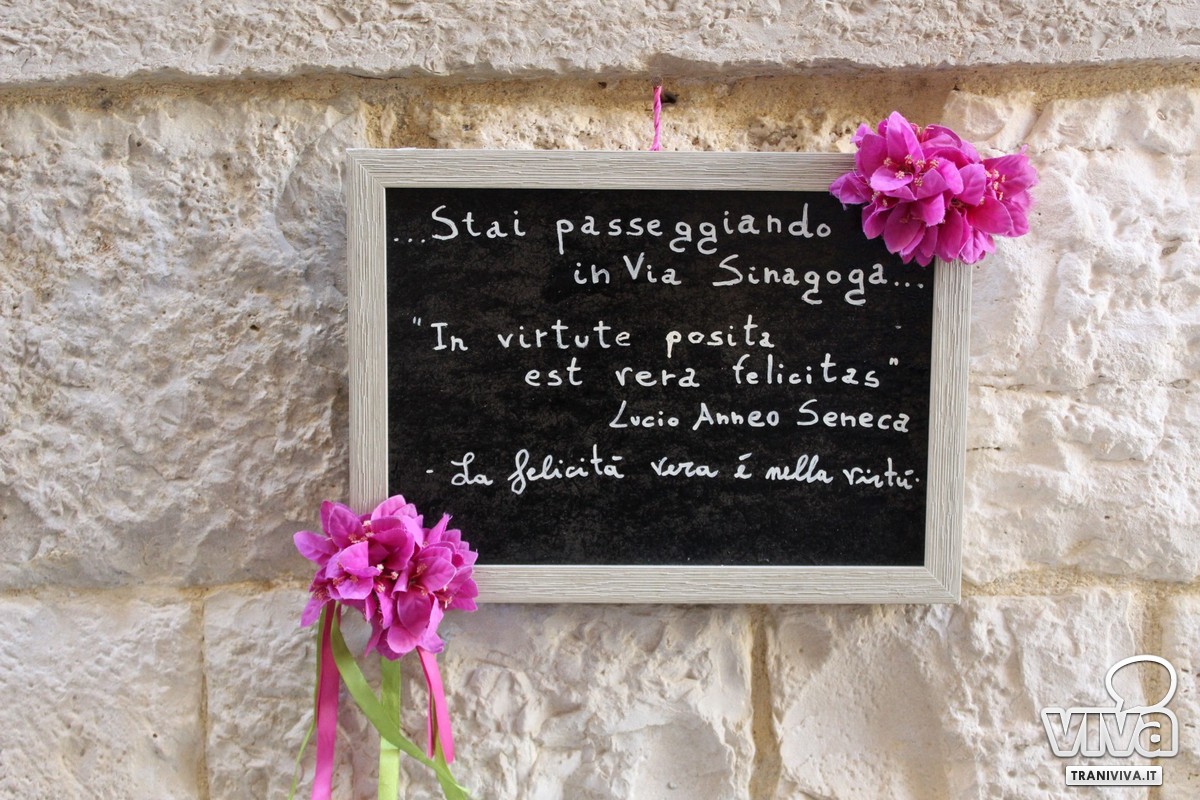 ...Stai passeggiando
in Via Sinagoga...
"In virtute posita
est vera felicitas"
Lucio Anneo Seneca
- La felicitá vera é nella virtú.
viva
TRANIVIVA.IT